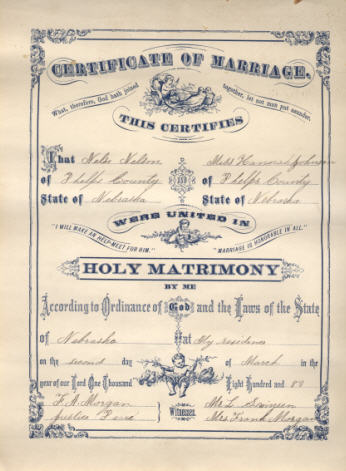 CERTIFICATE OF MARRIAGE.
What, therefore, God hath joined together, let not man put asunder.
THIS CERTIFIES
That Nels Nelson and Miss Johnson
of Phelps County of Phelps County
State of Nebraska State of Nebraska
WERE UNITED IN
"I WILL MAKE AN HELP-MEET FOR HIM." "MARRIAGE IS HONORABLE IN ALL."
HOLY MATRIMONY
BY ME
According to Ordinance of God and the Laws of the State
of Nebraska at My residence
on the second day of March in the
year of our Lord One Thousand Eight Hundred and
F. A. Morgan Witnesses
Mrs. Frank Morgan